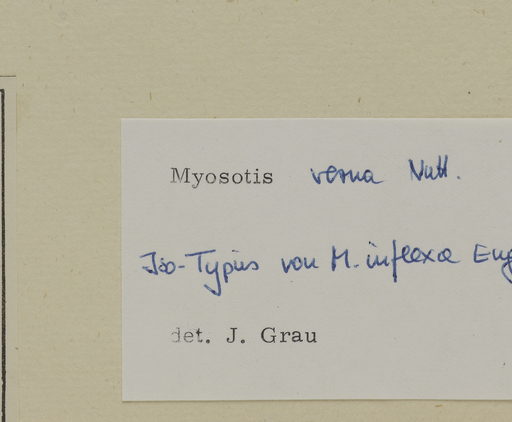 Myosotis verna Nutt.
Iso-Typus von M. inflexa Eng
det. J. Grau